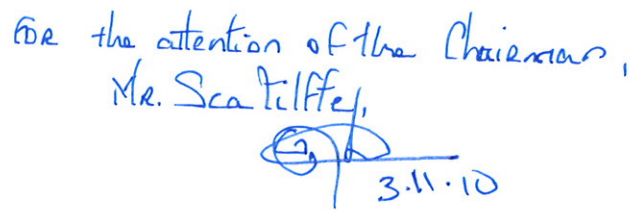 FOR the attention of the Chairman,
MR. Scatliffe,
3.11.10